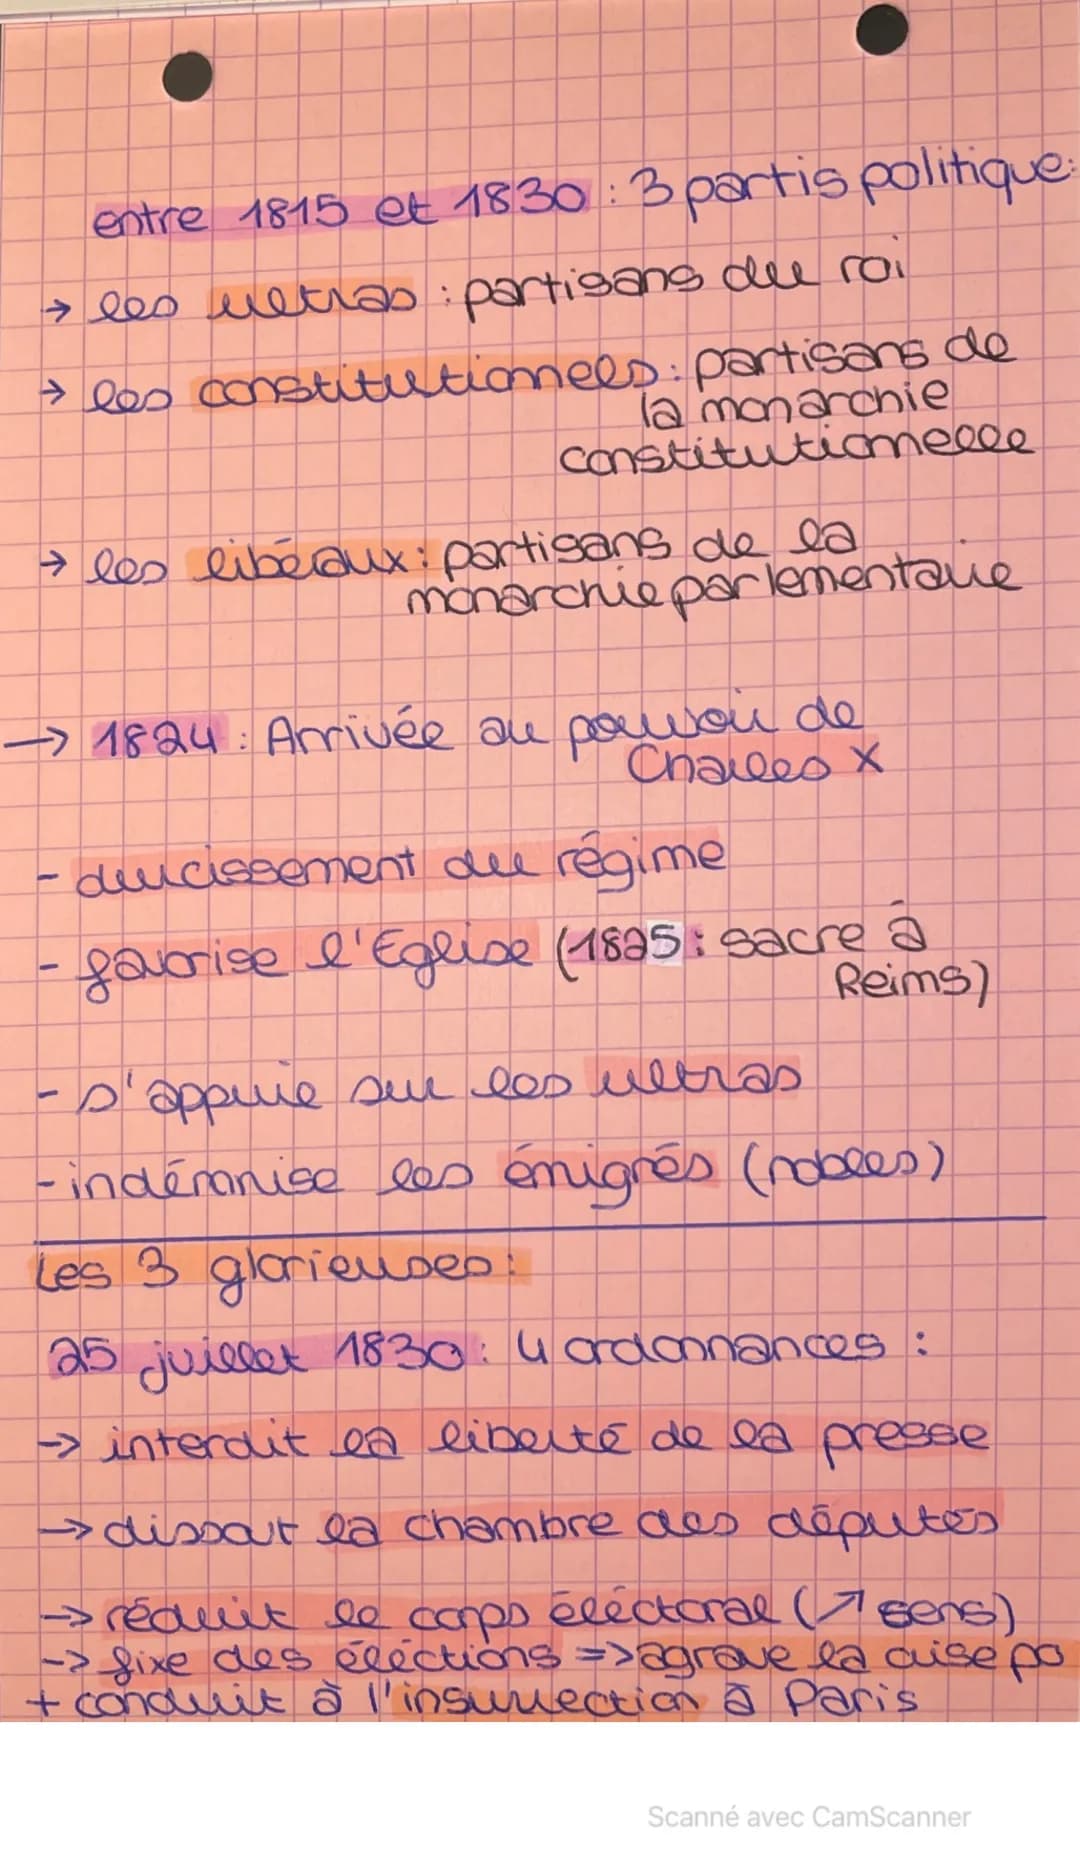 entre 1815 et 1830 : 3 partis politique:
→ les ultras : partisans du roi
→ les constitutionnels : partisans de
la monarchie
constitutionnelle
→ les libéraux : partisans de la
monarchie parlementaire
→ 1824 : Arrivée au pouvoir de
Charles X
- durcissement du régime
- favorise l'Eglise (1825 : sacre à
Reims)
- s'appuie sur les ultras
- indémnise les émigrés (nobles)
Les 3 glorieuses :
25 juillet 1830 : 4 ordonnances :
→ interdit la liberté de la presse
→ dissout la chambre des députés
→ réduit le corps éléctoral (↗ sens)
→ fixe des éléctions => agrave la crise po
+ conduit à l'insurrection à Paris
Scanné avec CamScanner